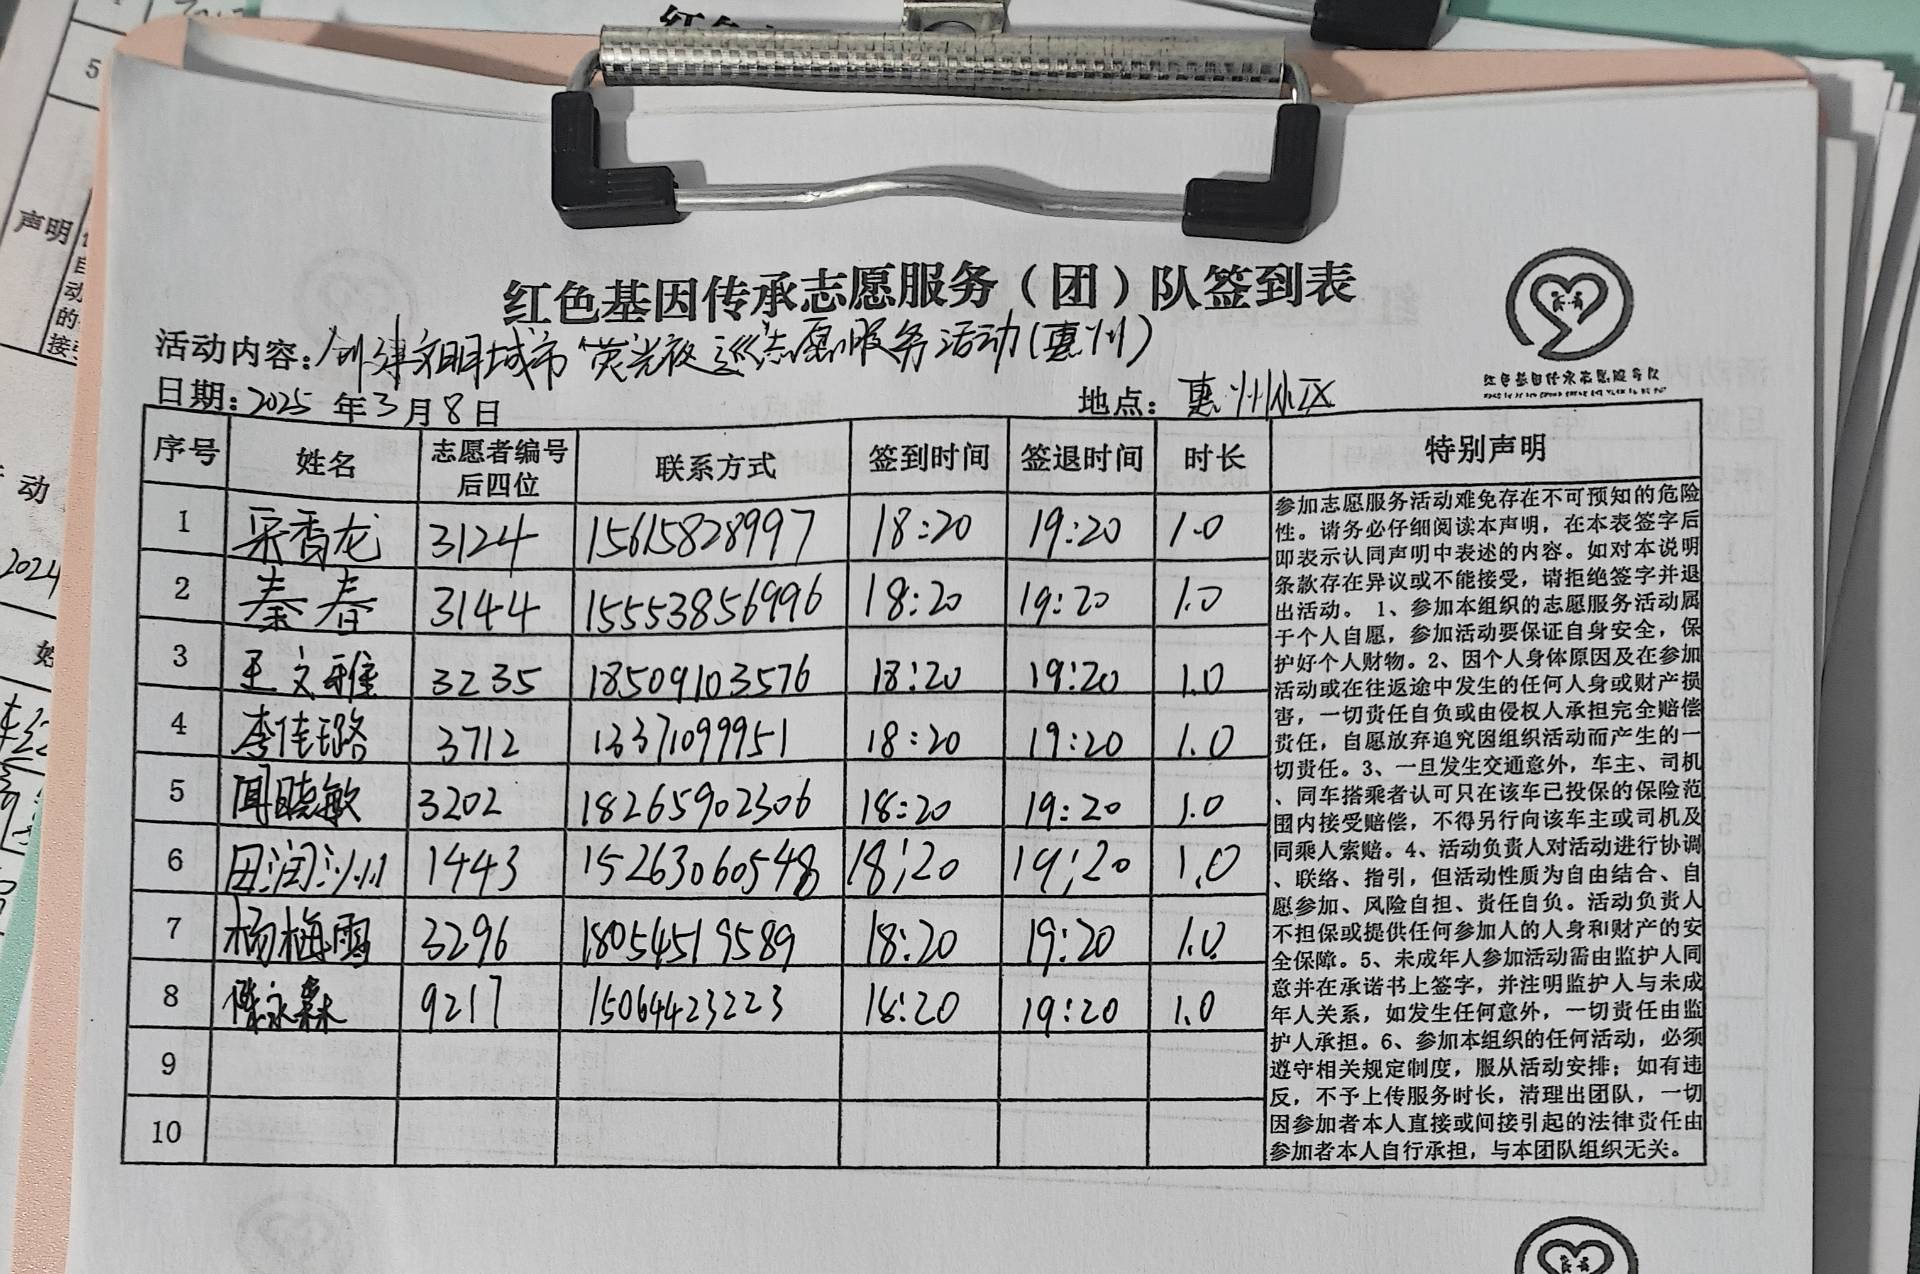 红色基因传承志愿服务（团）队签到表
活动内容：创建文明城市“荧光夜巡”志愿服务活动（惠州）
日期：2025年3月8日 地点：惠州小区
序号 姓名 志愿者编号后四位 联系方式 签到时间 签退时间 时长 特别声明
1 香龙 3124 15615828997 18:20 19:20 1.0
2 秦春 3144 15553856996 18:20 19:20 1.0
3 王文雅 3235 18509103576 18:20 19:20 1.0
4 李佳璐 3712 13371099951 18:20 19:20 1.0
5 闻晓敏 3202 18265902306 18:20 19:20 1.0
6 田润 1443 15263060548 18:20 19:20 1.0
7 杨梅雪 3296 18054519589 18:20 19:20 1.0
8 陈永森 9217 15064423223 18:20 19:20 1.0
9
10
参加志愿服务活动难免存在不可预知的危险
性。请务必仔细阅读本声明，在本表签字后
即表示认同声明中表述的内容。如对本说明
条款存在异议或不能接受，请拒绝签字并退
出活动。 1、参加本组织的志愿服务活动属
于个人自愿，参加活动要保证自身安全，保
护好个人财物。2、因个人身体原因及在参加
活动或在往返途中发生的任何人身或财产损
害，一切责任自负或由侵权人承担完全赔偿
责任，自愿放弃追究因组织活动而产生的一
切责任。3、一旦发生交通意外，车主、司机
、同车搭乘者认可只在该车已投保的保险范
围内接受赔偿，不得另行向该车主或司机及
同乘人索赔。4、活动负责人对活动进行协调
、联络、指引，但活动性质为自由结合、自
愿参加、风险自担、责任自负。活动负责人
不担保或提供任何参加人的人身和财产的安
全保障。5、未成年人参加活动需由监护人同
意并在承诺书上签字，并注明监护人与未成
年人关系，如发生任何意外，一切责任由监
护人承担。6、参加本组织的任何活动，必须
遵守相关规定制度，服从活动安排；如有违
反，不予上传服务时长，清理出团队，一切
因参加者本人直接或间接引起的法律责任由
参加者本人自行承担，与本团队组织无关。
红色基因传承志愿服务队
5
声明
动
2024